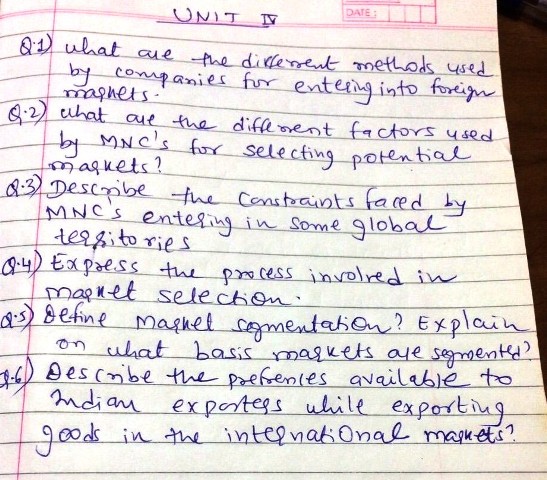 UNIT IV
DATE :
Q.1) what are the different methods used
by companies for entering into foreign
markets.
Q.2) what are the different factors used
by MNC's for selecting potential
markets?
Q.3) Describe the Constraints faced by
MNC's entering in some global
territories
Q.4) Express the process involved in
market selection.
Q.5) Define Market segmentation? Explain
on what basis markets are segmented?
Q.6) Describe the prefrences available to
Indian exporters while exporting
goods in the international markets?